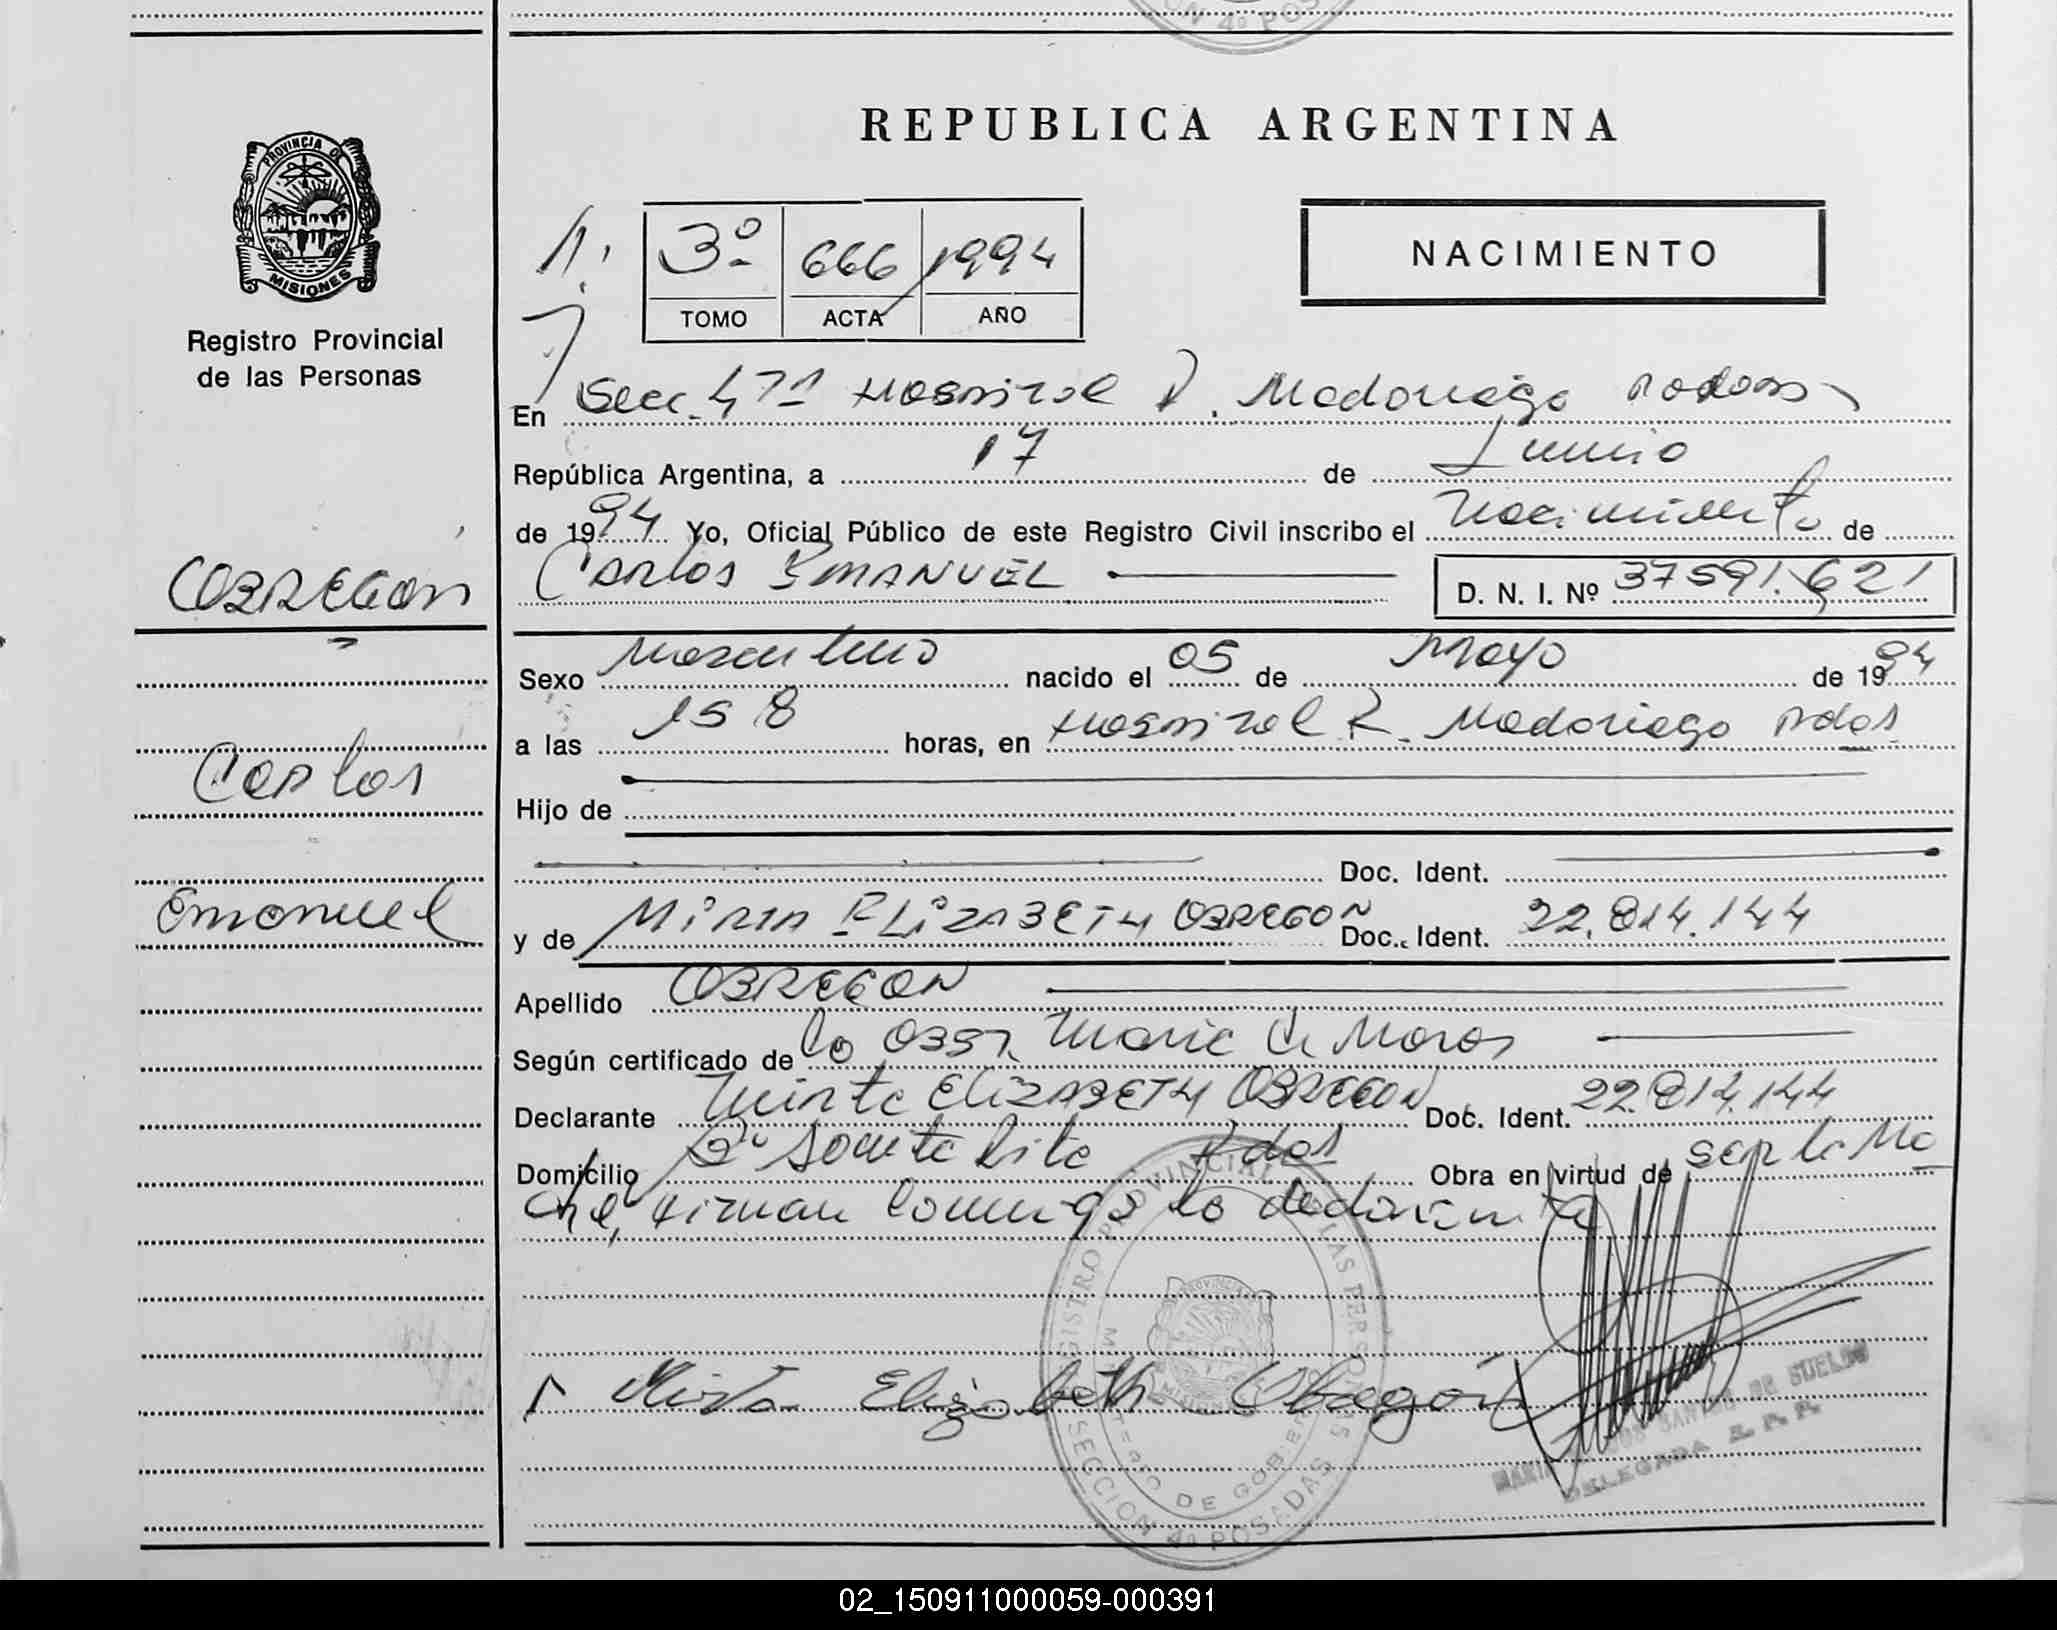 REPUBLICA ARGENTINA
PROVINCIA DE
MISIONES
Registro Provincial
de las Personas
3º 666 1994
TOMO ACTA AÑO
NACIMIENTO
En Secc. 4ta Hospital R. Madariaga Posadas
República Argentina, a 17 de Junio
de 1994 Yo, Oficial Público de este Registro Civil inscribo el Nacimiento de
OBREGON
Carlos EMANUEL D. N. I. Nº 37591.621
Sexo Masculino nacido el 05 de Mayo de 1994
a las 15 8 horas, en Hospital R. Madariaga Pdas
Carlos
Hijo de
Doc. Ident.
Emanuel
y de MIRTA ELIZABETH OBREGON Doc. Ident. 22.814.144
Apellido OBREGON
Según certificado de la Obst. Maria
Declarante Mirta ELIZABETH OBREGON Doc. Ident. 22.814.144
Domicilio Santa Rita Pdas Obra en virtud de ser la Ma
dre, firman conmigo la declarante
Mirta Elizabeth Obregón
REGISTRO PROVINCIAL DE LAS PERSONAS
SECCION 4º POSADAS
DELEGADA R. P. P.
02_150911000059-000391